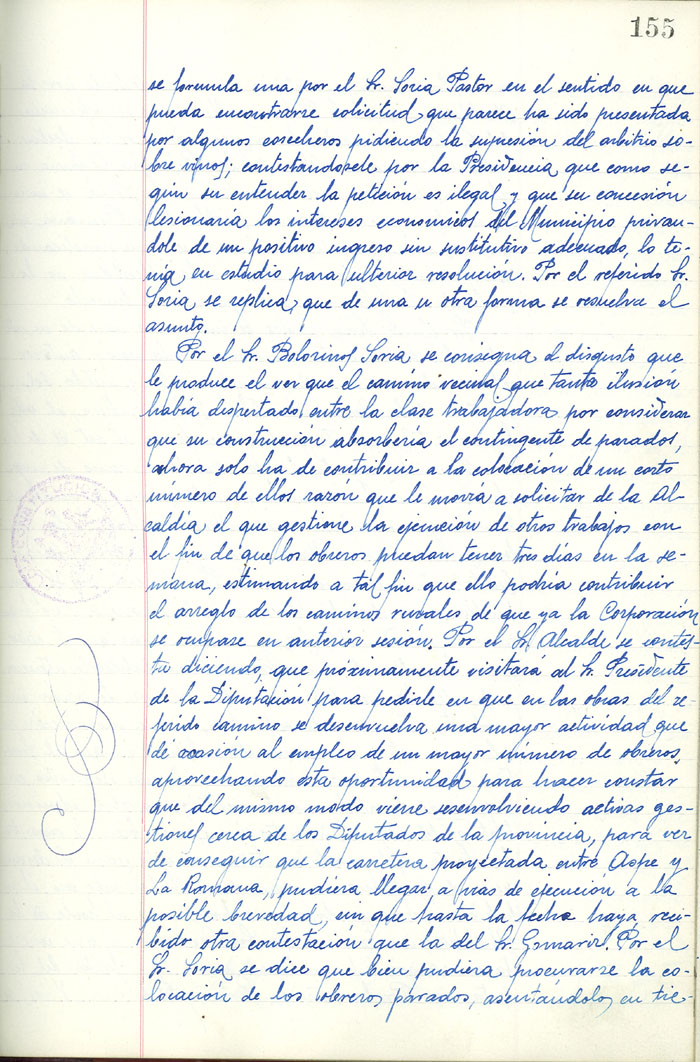 155
se formula una por el Sr. Soria Pastor en el sentido en que
pueda encontrarse solicitud que parece ha sido presentada
por algunos cosecheros pidiendo la supresión del arbitrio so-
bre vinos; contestandosele por la Presidencia que como se-
gún su entender la petición es ilegal y que su concesión
lesionaria los intereses economicos del Municipio privan-
dole de un positivo ingreso sin sustitutivo adecuado, lo te-
nia en estudio para ulterior resolución. Por el referido Sr.
Soria se replica, que de una u otra forma se resuelva el
asunto.
Por el Sr. Bolorinos Soria se consigna el disgusto que
le produce el ver que el camino vecinal que tanta ilusión
había despertado entre la clase trabajadora por considerar
que su construcción absorbería el contingente de parados,
ahora solo ha de contribuir a la colocación de un corto
número de ellos razón que le movia a solicitar de la Al-
caldía el que gestione la ejecución de otros trabajos con
el fin de que los obreros puedan tener tres días en la se-
mana, estimando a tal fin que ello podría contribuir
el arreglo de los caminos rurales de que ya la Corporación
se ocupase en anterior sesión. Por el Sr. Alcalde se contes-
ta diciendo, que próximamente visitará al Sr. Presidente
de la Diputación para pedirle en que en las obras del re-
ferido camino se desenvuelva una mayor actividad que
dé ocasión al empleo de un mayor número de obreros,
aprovechando esta oportunidad para hacer constar
que del mismo modo viene desenvolviendo activas ges-
tiones cerca de los Diputados de la provincia, para ver
de conseguir que la carretera proyectada entre Aspe y
La Romana, pudiera llegar a vias de ejecución a la
posible brevedad, sin que hasta la fecha haya reci-
bido otra contestación que la del Sr. Por el
Sr. Soria se dice que bien pudiera procurarse la co-
locación de los obreros parados, asentándolos en tie-